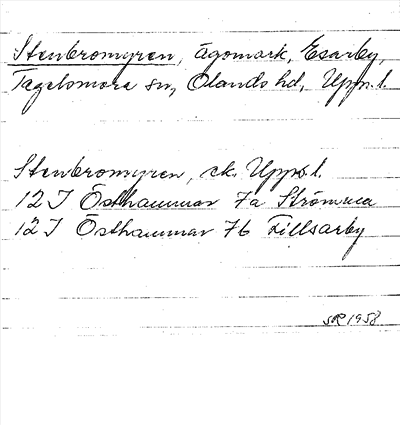 Stenbromyren, ägomark, Esarby,
Tegelsmora sn, Olands hd, Upps. l.
Stenbromyren, ek. Upps. l.
12 I Östhammar 7a Strömma
12 I Östhammar 7b Tillsarby
1958